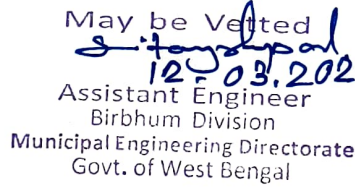 May be Vetted
12-03.202
Assistant Engineer
Birbhum Division
Municipal Engineering Directorate
Govt. of West Bengal